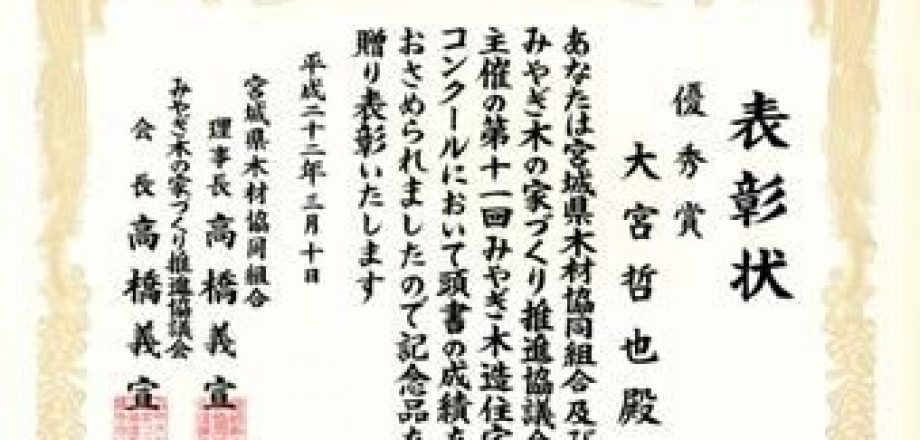 表彰状
優秀賞
大宮哲也殿
あなたは宮城県木材協同組合及び
みやぎ木の家づくり推進協議会
主催の第十一回みやぎ木造住宅
コンクールにおいて頭書の成績を
おさめられましたので記念品を
贈り表彰いたします
平成二十二年三月十日
宮城県木材協同組合
理事長 高橋義宣
みやぎ木の家づくり推進協議会
会長 高橋義宣